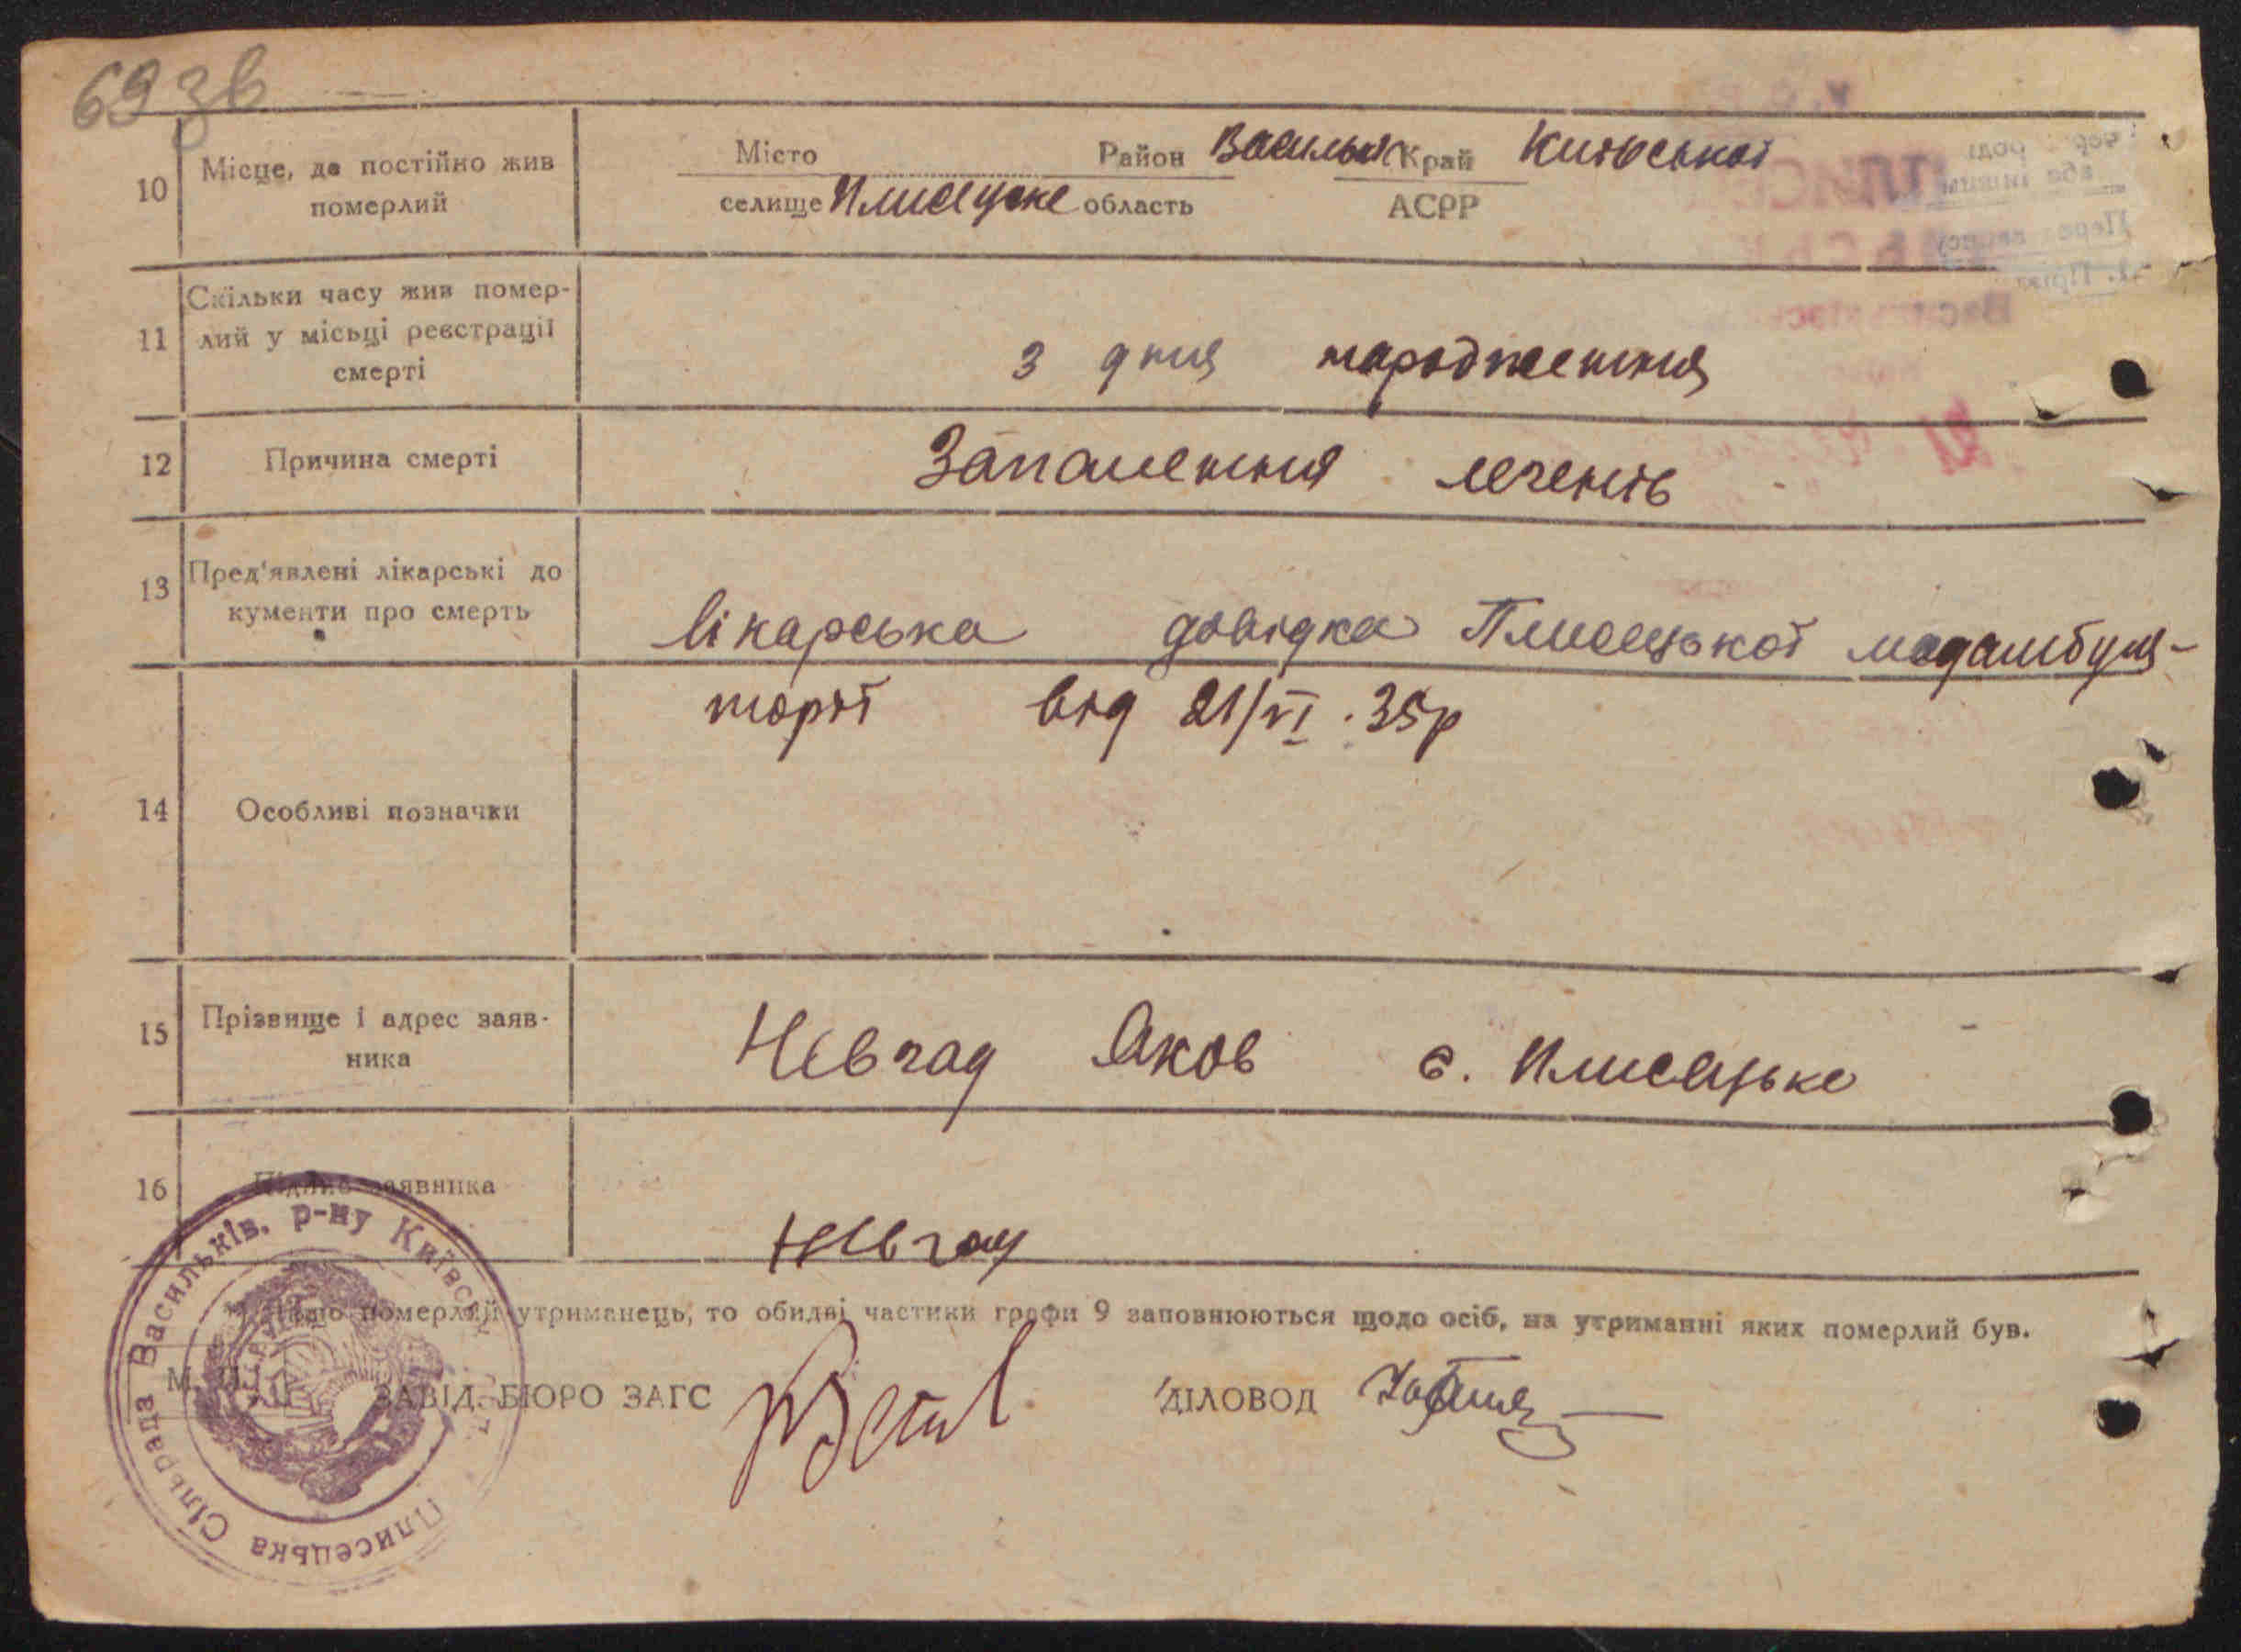 69 зв
10 Місце, де постійно жив померлий
Місто Район Васильк Край Київської
селище Плисецьке область АСРР
11 Скільки часу жив помер-
лий у місьці реєстрації
смерті
з дня народження
12 Причина смерті Запалення легенів
13 Пред'явлені лікарські до
кументи про смерть
лікарська довідка Плисецької медамбуля-
торії від 21/VI . 35р
14 Особливі позначки
15 Прізвище і адрес заяв-
ника
Невгад Яков с. Плисецьке
16 Підпис заявника
Невгад
Якщо померлий утриманець, то обидві частики графи 9 заповнюються щодо осіб, на утриманні яких померлий був.
М. П. ЗАВІД. БЮРО ЗАГС ДІЛОВОД
Плисецька Сільрада Васильків. р-ну Київськ